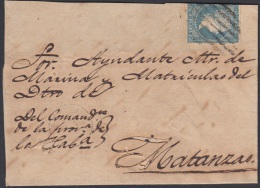 Sor. Ayudante Mr. de
Marina y Matriculas del
Dtro de
Del Comandte
de la prova. de
la Haba
Matanzas.